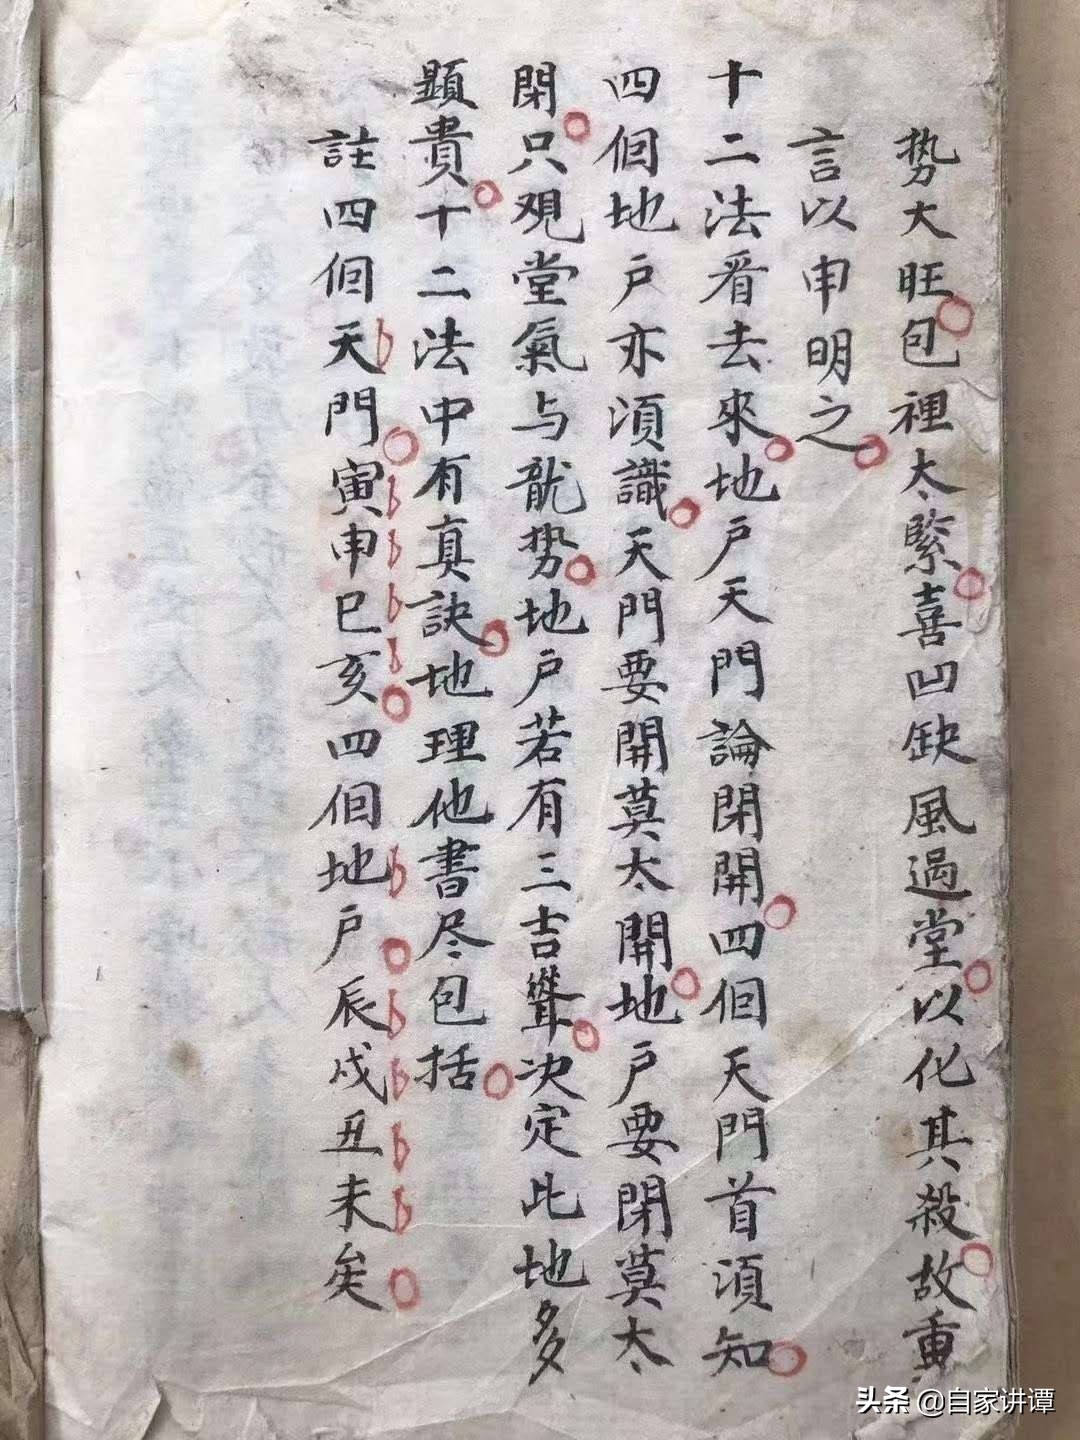 势大旺包裡太緊喜凹缺風過堂以化其殺故重
言以申明之
十二法看去來地戶天門論閉開四個天門首須知
四個地戶亦須識天門要開莫太開地戶要閉莫太
閉只观堂氣与龍势地戶若有三吉聳决定此地多
顕貴十二法中有真訣地理他書尽包括
註四個天門寅申巳亥四個地戶辰戌丑未矣
头条@自家讲谭